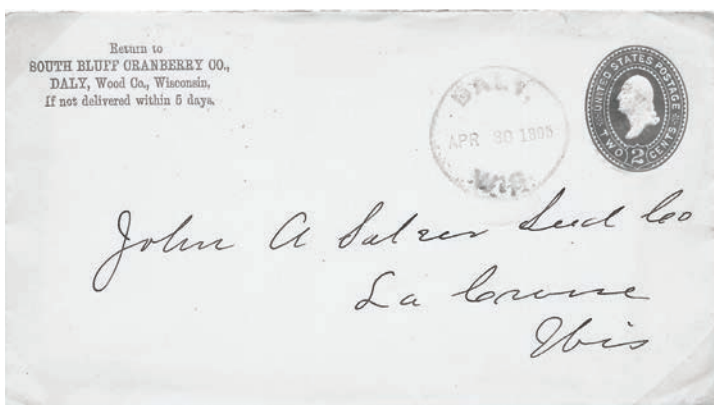 Return to
SOUTH BLUFF CRANBERRY CO.,
DALY, Wood Co., Wisconsin,
If not delivered within 5 days.
DALY,
APR 30 1895
WIS.
UNITED STATES POSTAGE
TWO 2 CENTS
John A Salzer Seed Co
La Crosse
Wis